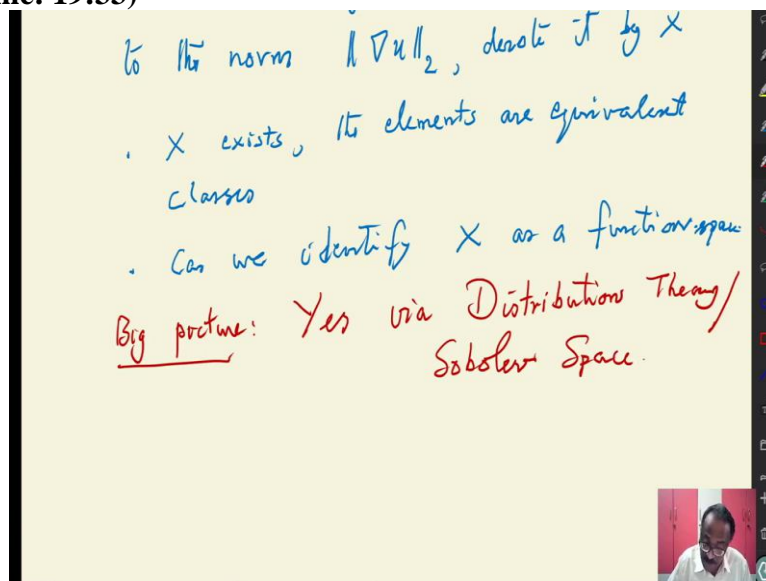 to the norm ‖∇u‖₂, denote it by X
. X exists, the elements are equivalent
classes
. Can we identify X as a function space
Big picture: Yes via Distribution Theory/
Sobolev Space.